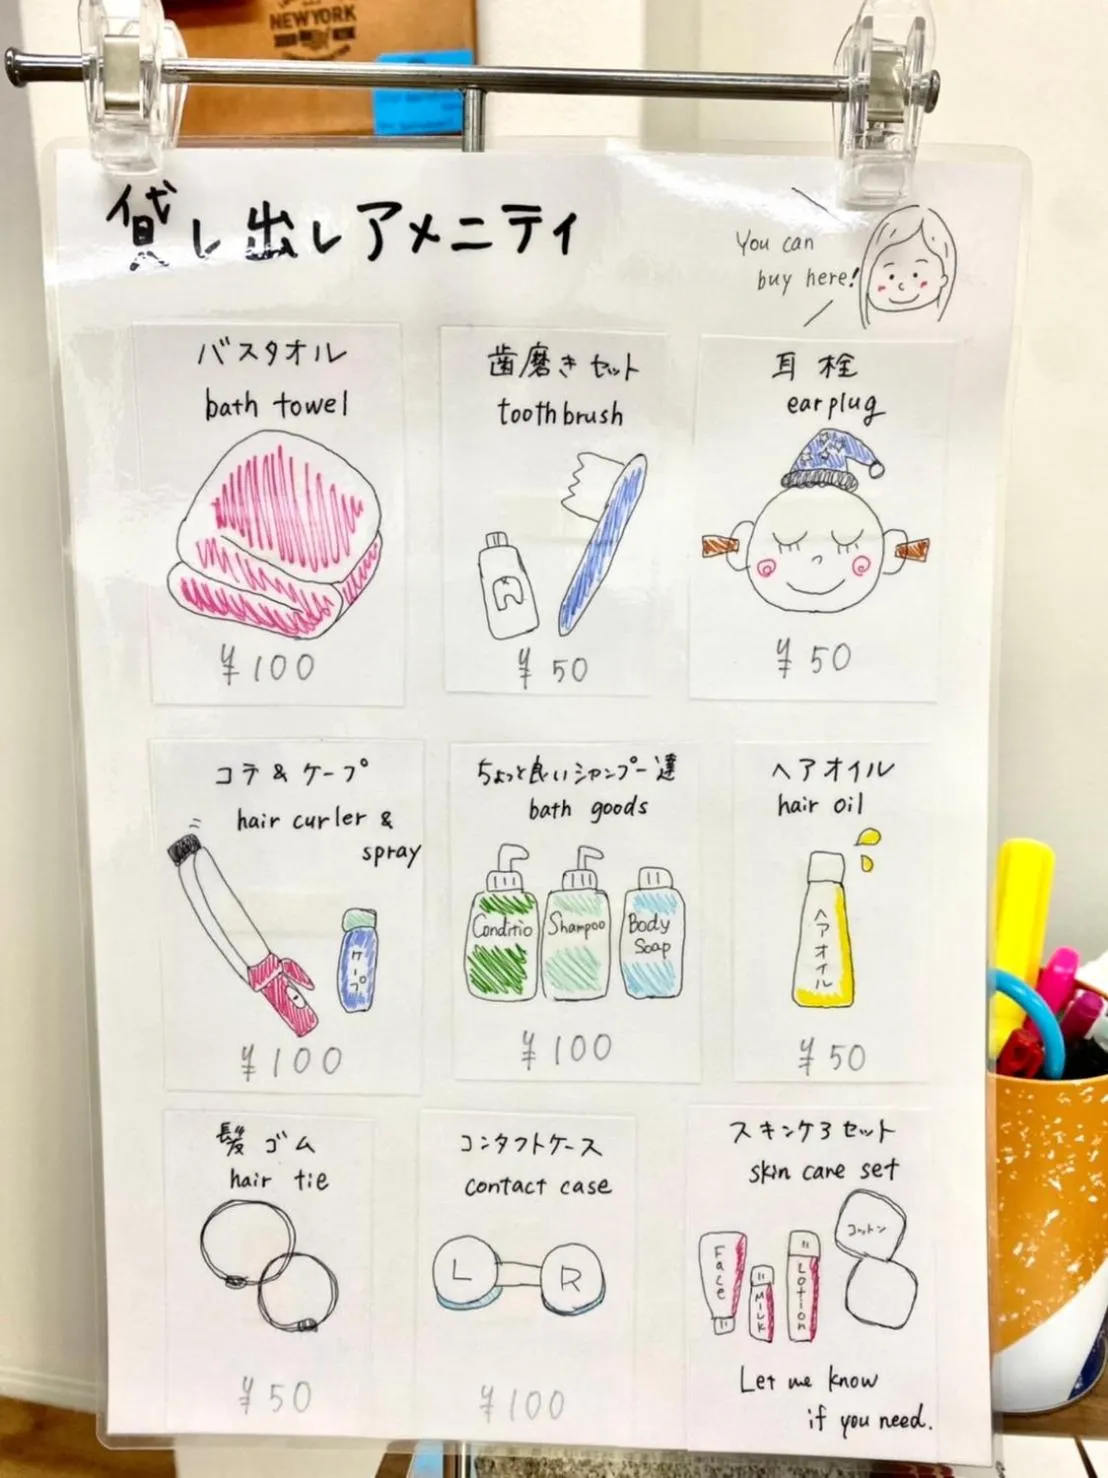 NEW YORK
貸し出しアメニティ
You can
buy here!
バスタオル
bath towel
¥100
歯磨きセット
toothbrush
¥50
耳栓
ear plug
¥50
コテ & ケープ
hair curler &
spray
ケープ
¥100
ちょっと良いシャンプー達
bath goods
Conditio
Shampoo
Body
Soap
¥100
ヘアオイル
hair oil
ヘアオイル
¥50
髪ゴム
hair tie
¥50
コンタクトケース
contact case
L
R
¥100
スキンケア3セット
skin care set
コットン
Face
MILK
Lotion
Let me know
if you need.